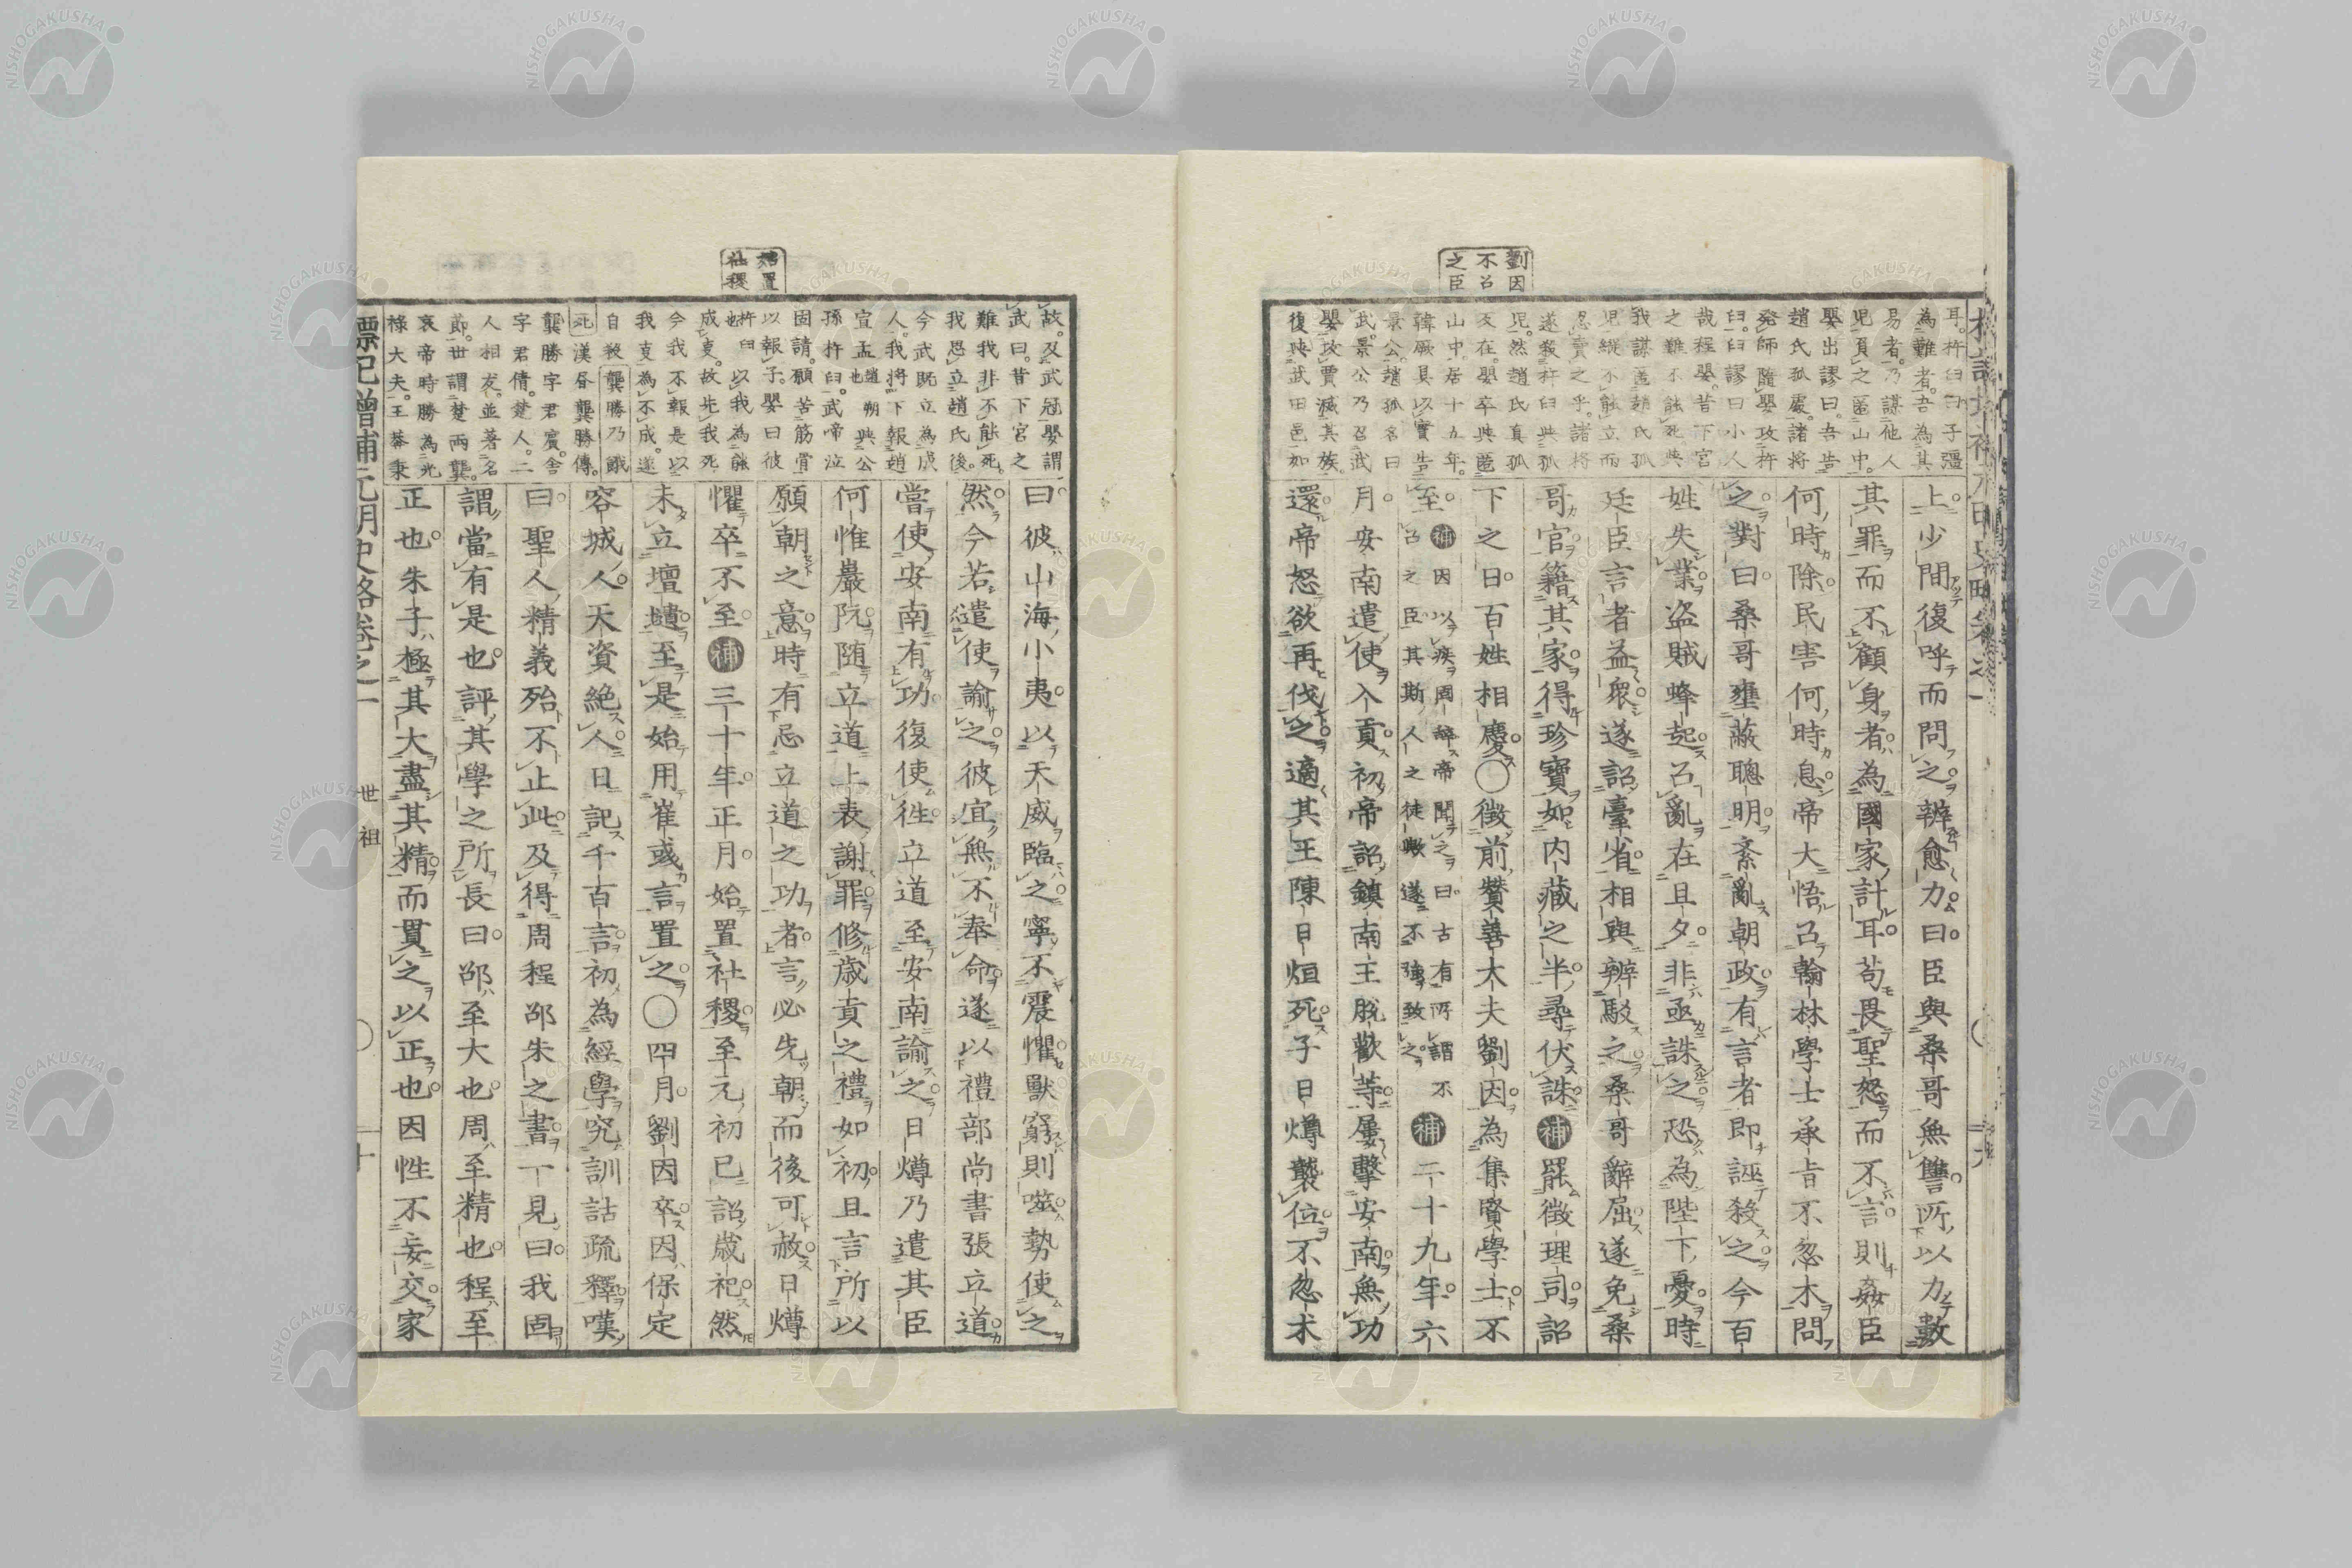 劉因
不召
之臣
耳。杵臼曰子彊
為難者。吾為其
易者。乃謀他人
児負之匿山中。
嬰出謬曰。吾告
趙氏孤處。諸將
発師隨嬰攻杵
臼。臼謬曰小人
哉程嬰。昔下宮
之難不能死。與
我謀匿趙氏孤
児縱不能立而
忍賣之乎。諸將
遂殺杵臼與孤
児。然趙氏真孤
在。嬰卒與匿
山中。居十五年。
韓厥具以實告
景公。趙孤名曰
武。景公乃召武
嬰攻賈滅其族。
復與武田邑如
上少間復呼而問之辨愈力。曰臣與桑哥無讐所以力數
其罪而不顧身者為國家計耳。苟畏聖怒而不言則姦臣
何時除民害何時息帝大悟召翰林學士承旨不忽木問
之對曰桑哥壅蔽聰明紊亂朝政有言者即誣殺之今百
姓失業盜賊蜂起召亂在且夕非亟誅之恐為陛下憂時
廷臣言者益衆遂詔臺省相與辨駁之桑哥辭屈遂免桑
哥官籍其家得珍寶如內藏之半尋伏誅補罷徵理司詔
下之日百姓相慶〇徵前贊善大夫劉因為集賢學士不
至補因以疾固辭帝聞之曰古有所謂不召之臣其斯人之徒歟遂不強致之補二十九年六
月安南遣使入貢初帝詔鎮南王脫歡等屢擊安南無功
還帝怒欲再伐之適其王陳日烜死子日燇襲位不忽木
始置
社稷
故。及武冠嬰謂
武曰。昔下宮之
難我非不能死。
我思立趙氏後。
今武既立為成
人。我將下報趙
宣孟趙朔也與公
孫杵臼。武帝泣
固請。願苦筋骨
以報子。嬰曰彼
杵臼也以我為能
成㕝。故先我死
今我不報是以
我㕝為不成。遂
自殺龔勝乃餓
死漢昏龔勝傳。
龔勝字君賓。舍
字君倩。楚人。二
人相友。並著名
節。世謂楚兩龔。
哀帝時勝為光
祿大夫。王莽秉
曰彼山海小夷以天威臨之寧不震懼獸窮則噬勢使之
然今若遣使諭之彼宜無不奉命遂以禮部尚書張立道
嘗使安南有功復使徃立道至安南諭之日燇乃遣其臣
何惟巖阮隨立道上表謝罪修歲貢之禮如初且言所以
願朝之意時有忌立道之功者言必先朝而後可赦日燇
懼卒不至補三十年正月始置社稷至元初已詔歲祀然
未立壇壝至是始用崔彧言置之〇四月劉因卒因保定
容城人天資絕人日記千百言初為經學究訓詁疏釋嘆
曰聖人精義殆不止此及得周程邵朱之書一見曰我固
謂當有是也評其學之所長曰邵至大也周至精也程至
正也朱子極其大盡其精而貫之以正也因性不妄交家
標記增補元明史略卷之一 世祖 十